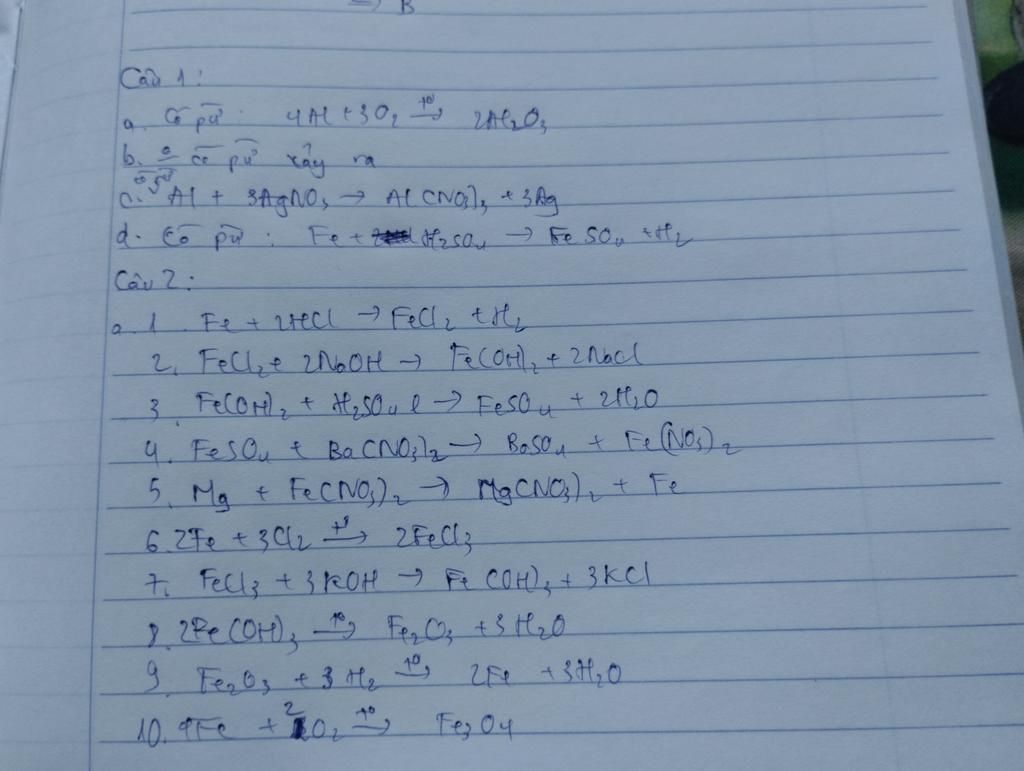 => B
Câu 1:
a. Có pư: 4Al + 3O₂ t°→ 2Al₂O₃
b. ० có pư xảy ra
c. Có pư Al + 3AgNO₃ → Al(NO₃)₃ + 3Ag
d. Có pư: Fe + H₂SO₄ → FeSO₄ + H₂
Câu 2:
a. 1. Fe + 2HCl → FeCl₂ + H₂
2. FeCl₂ + 2NaOH → Fe(OH)₂ + 2NaCl
3. Fe(OH)₂ + H₂SO₄ l → FeSO₄ + 2H₂O
4. FeSO₄ + Ba(NO₃)₂ → BaSO₄ + Fe(NO₃)₂
5. Mg + Fe(NO₃)₂ → Mg(NO₃)₂ + Fe
6. 2Fe + 3Cl₂ t°→ 2FeCl₃
7. FeCl₃ + 3KOH → Fe(OH)₃ + 3KCl
8. 2Fe(OH)₃ t°→ Fe₂O₃ + 3H₂O
9. Fe₂O₃ + 3H₂ t°→ 2Fe + 3H₂O
10. Fe + 2O₂ t°→ Fe₃O₄